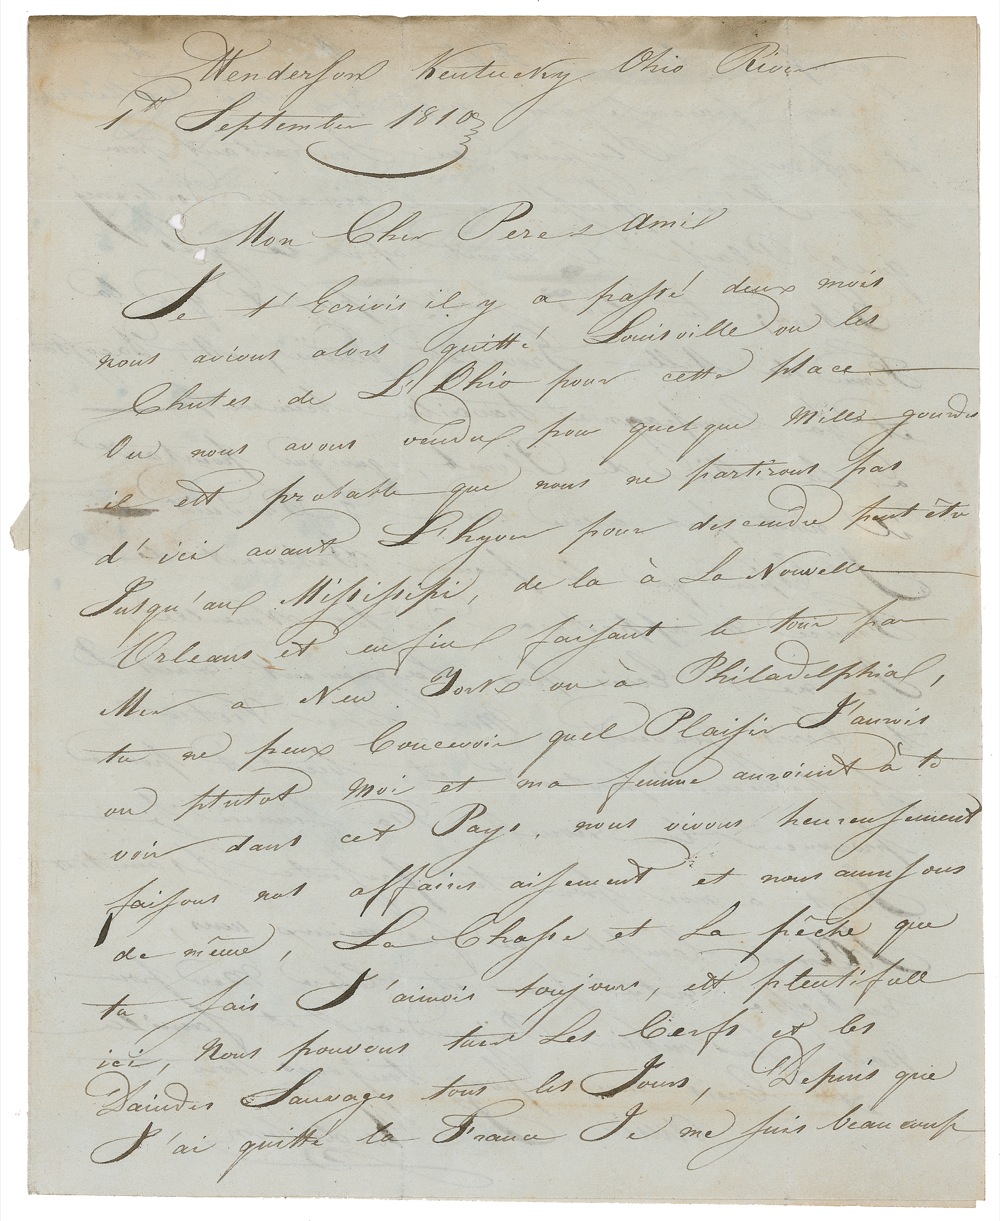 Henderson Kentucky Ohio River
1th September 1810
Mon Cher Pere & Ami
Je t'Ecrivis il y a passé deux mois
nous avions alors quitté Louisville ou les
Chutes de L'Ohio pour cette place
Ou nous avons vendu pour quelque Mille gourdes
il est probable que nous ne partirons pas
d'ici avant L'hyver pour descendre peut être
Jusqu'au Mississipi, de la à La Nouvelle
Orleans et enfin faisant le tour par
Mer a New York ou à Philadelphia,
tu ne peux Concevoir quel Plaisir J'aurois
ou plutot Moi et ma femme auroient à te
voir dans cet Pays, nous vivons heureusement
faisons nos affaires aisement et nous amusons
de même, La Chasse et La pêche que
tu sais J'aimois toujours, est plentifull
ici, Nous pouvons tuer Les Cerfs et les
Daindes Sauvages tous les Jours, Depuis que
J'ai quitté la France Je me suis beaucoup